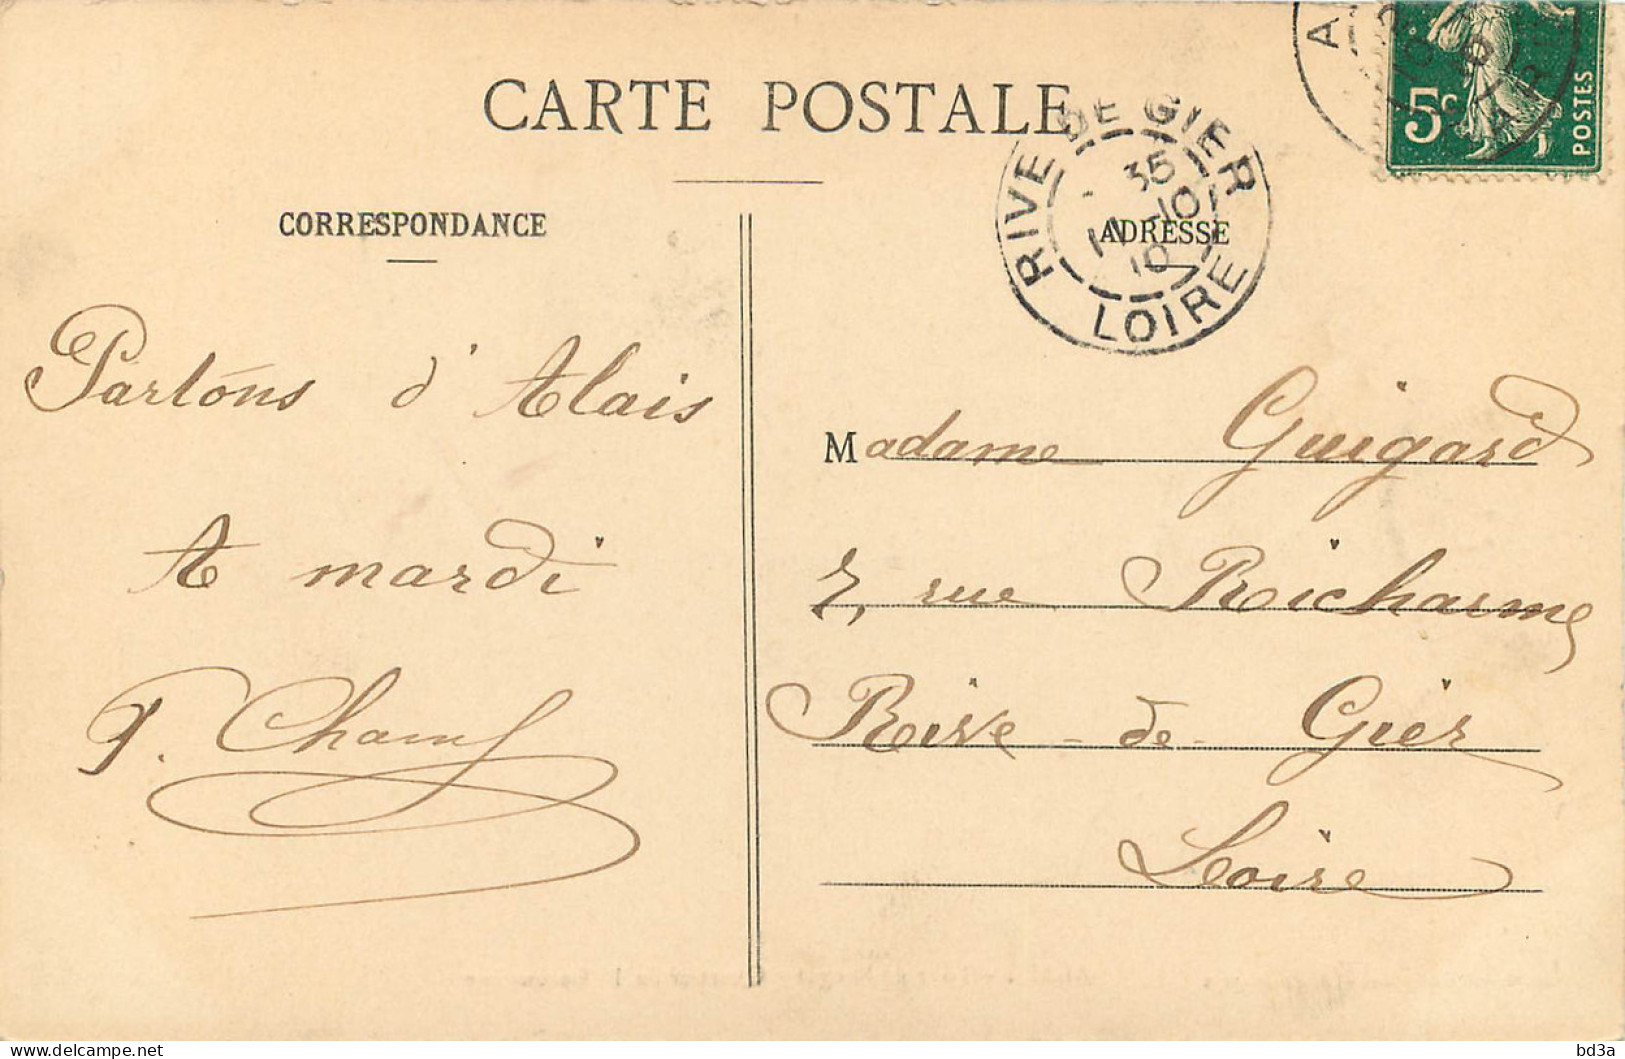 CARTE POSTALE
CORRESPONDANCE
ADRESSE
RIVE DE GIER
35
10
LOIRE
5c
POSTES
Partons d'Alais
A mardi
Madame Guigard
rue Richarme
Rive-de-Gier
Loire
bd3a